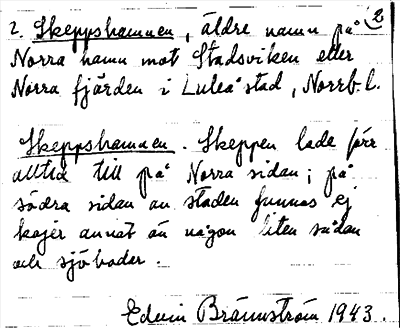 2
2. Skeppshamnen, äldre namn på
Norra hamn mot Stadsviken eller
Norra fjärden i Luleå stad, Norrb. l.
Skeppshamnen. Skeppen lade förr
alltid till på Norra sidan; på
södra sidan av staden funnos ej
kajer annat än någon liten sådan
och sjöbodar.
Edvin Brännström 1943.